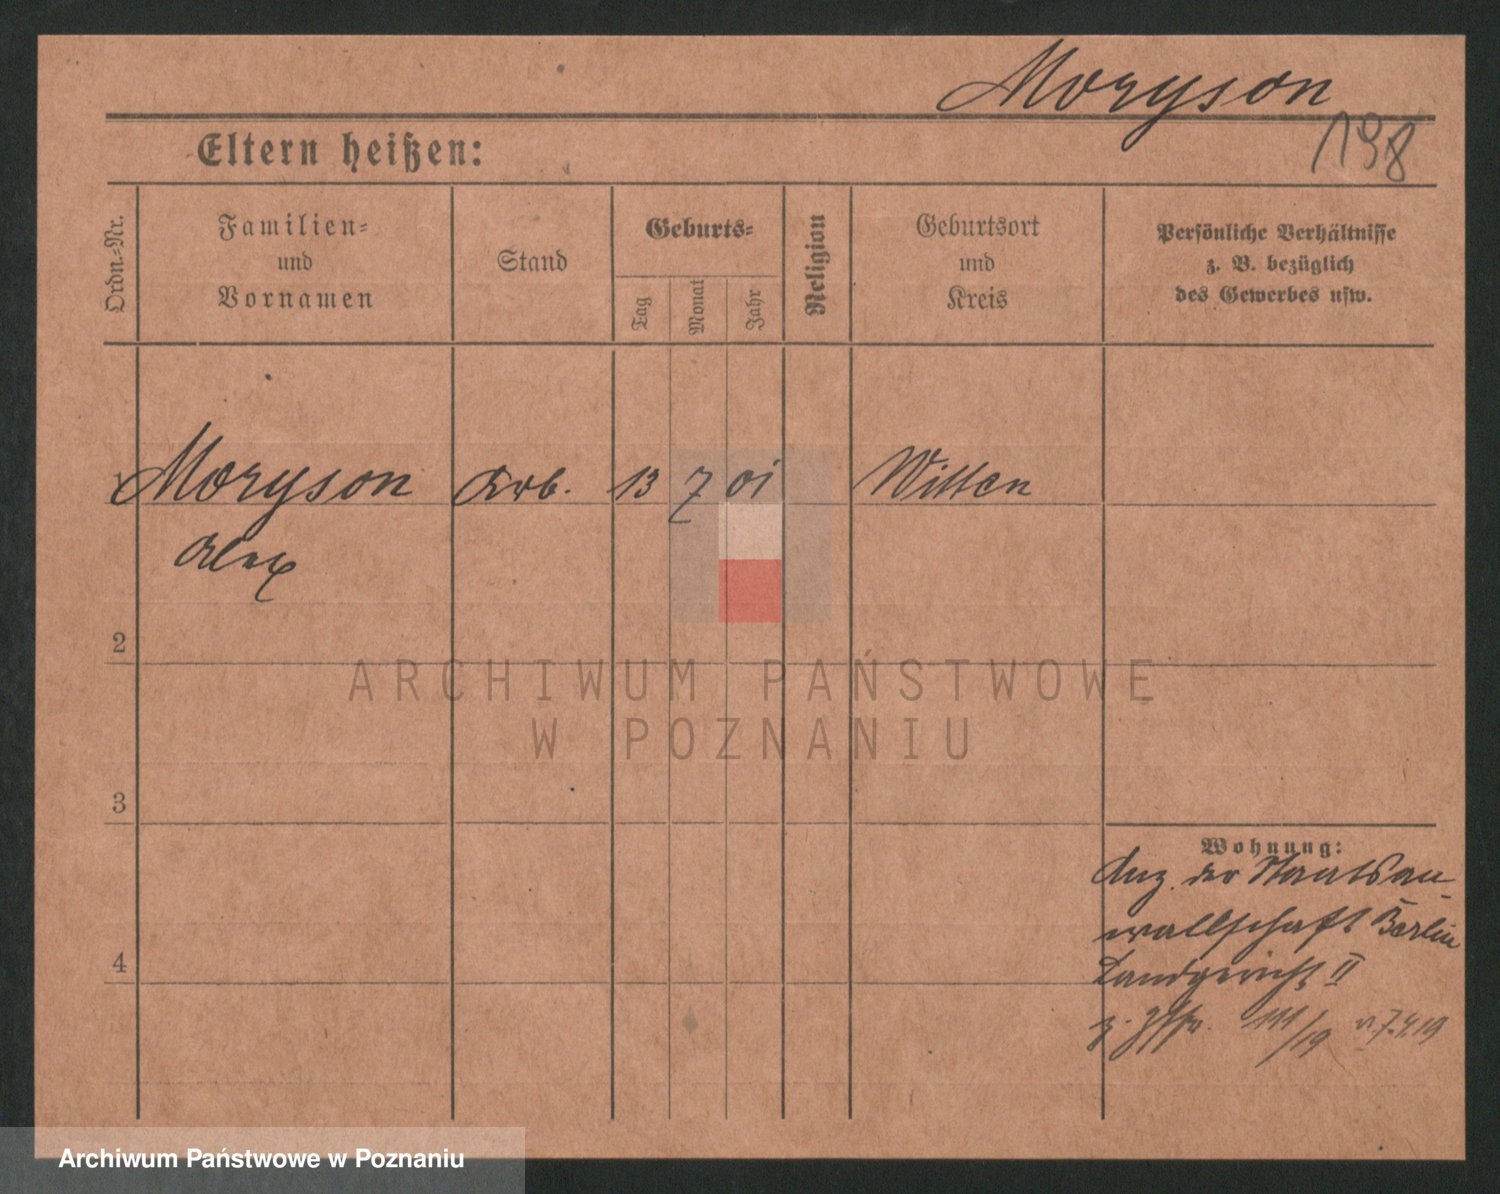 Moryson
198
Eltern heißen:
Ordn.-Nr.
Familien-
und
Vornamen
Stand
Geburts-
Tag
Monat
Jahr
Religion
Geburtsort
und
Kreis
Persönliche Verhältnisse
z. B. bezüglich
des Gewerbes usw.
1 Moryson Arb. 13 7 01 Witten
Alex
2
3
4
Wohnung:
Anz. der Staatsan-
waltschaft Berlin
Landgericht II
111/19 v. 7.4.19
ARCHIWUM PAŃSTWOWE
W POZNANIU
Archiwum Państwowe w Poznaniu